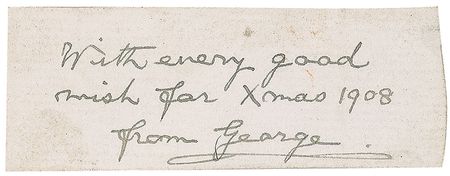 With every good
wish for Xmas 1908
from George.